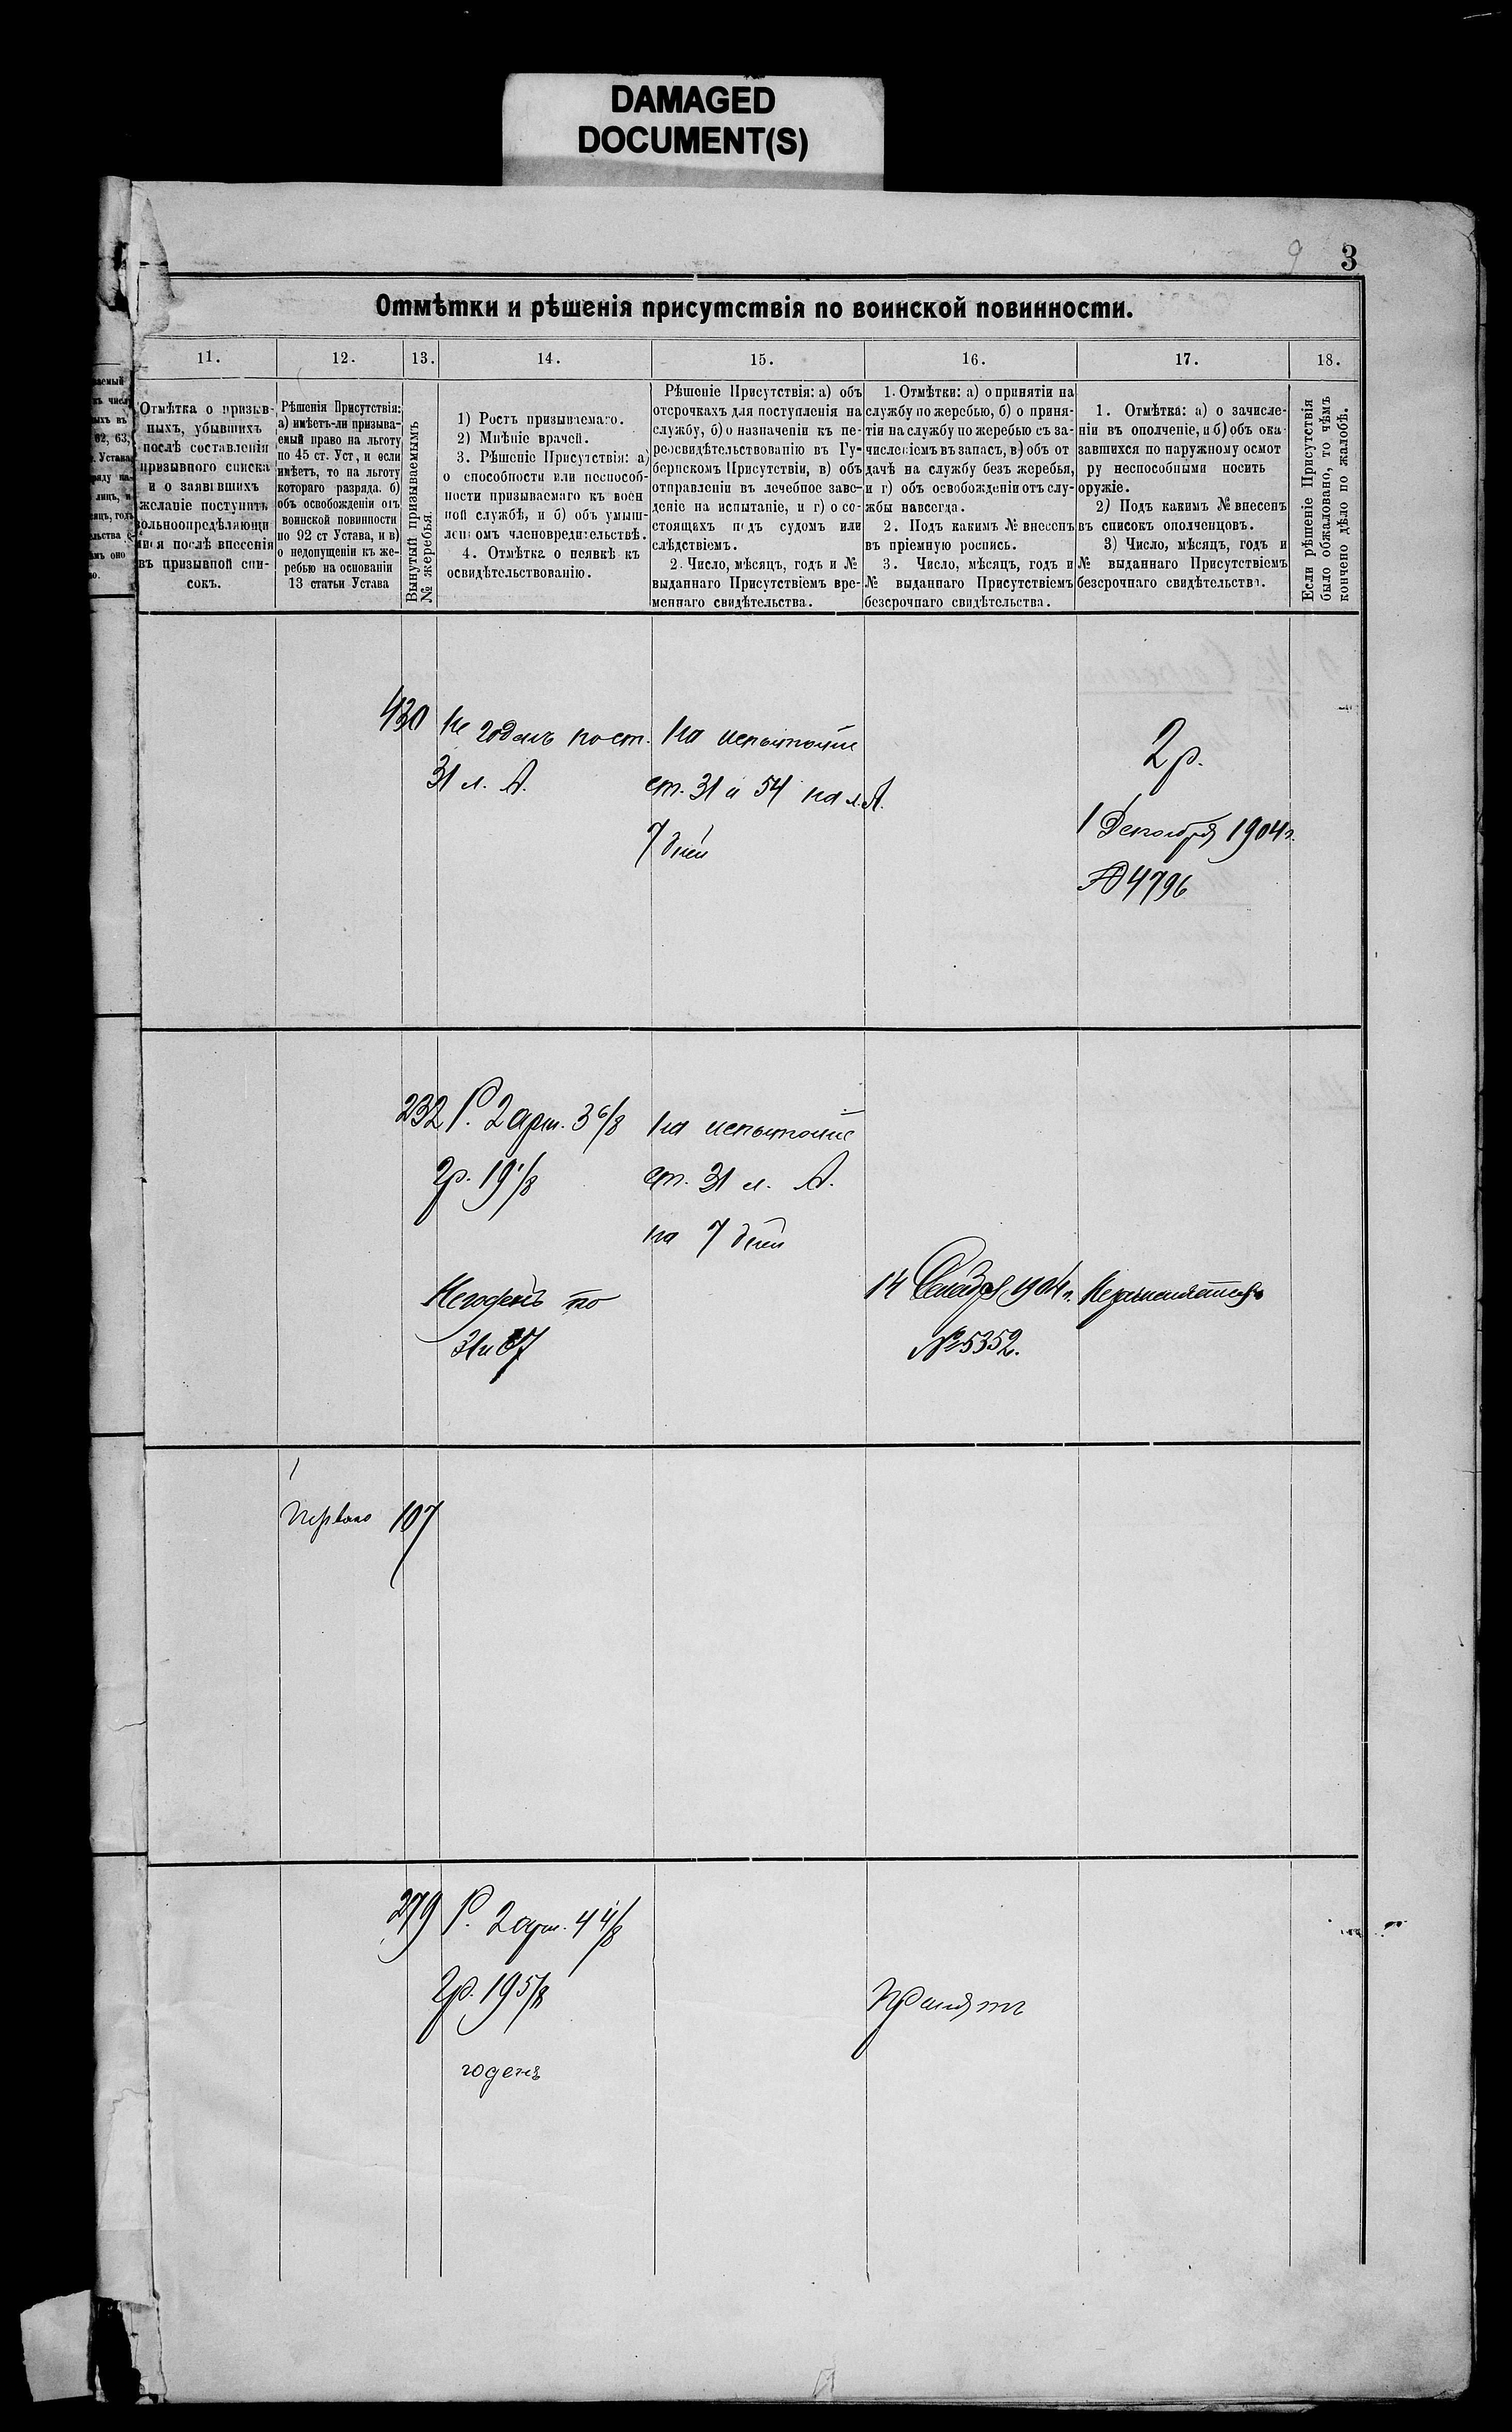 DAMAGED
DOCUMENT(S)
9 3
Отмѣтки и рѣшенія присутствія по воинской повинности.
11. 12. 13. 14. 15. 16. 17. 18.
Отмѣтка о призыв-
ныхъ, убывшихъ
послѣ составленія
призывного списка
и о заявившихъ
желаніе поступить
вольноопредѣляющи
мися послѣ внесенія
въ призывной спи-
сокъ.
Рѣшенія Присутствія:
а) имѣетъ-ли призыва-
емый право на льготу
по 45 ст. Уст, и если
имѣетъ, то на льготу
котораго разряда. б)
объ освобожденіи отъ
воинской повинности
по 92 ст Устава, и в)
о недопущеніи къ же-
ребью на основаніи
13 статьи Устава
Вынутый призываемымъ
№ жеребья.
1) Ростъ призываемаго.
2) Мнѣніе врачей.
3. Рѣшеніе Присутствія: а)
о способности или неспособ-
ности призываемаго къ воен
ной службѣ, и б) объ умыш-
ленномъ членовредительствѣ.
4. Отмѣтка о неявкѣ къ
освидѣтельствованію.
Рѣшеніе Присутствія: а) объ
отсрочкахъ для поступленія на
службу, б) о назначеніи къ пе-
реосвидѣтельствованію въ Гу-
бернскомъ Присутствіи, в) объ
отправленіи въ лечебное заве-
деніе на испытаніе, и г) о со-
стоящихъ подъ судомъ или
слѣдствіемъ.
2. Число, мѣсяцъ, годъ и №
выданнаго Присутствіемъ вре-
меннаго свидѣтельства.
1. Отмѣтки: а) о принятіи на
службу по жеребью, б) о приня-
тіи на службу по жеребью съ за-
численіемъ въ запасъ, в) объ от
дачѣ на службу безъ жеребья,
и г) объ освобожденіи отъ слу-
жбы навсегда.
2. Подъ какимъ № внесенъ
въ пріемную роспись.
3. Число, мѣсяцъ, годъ и
№ выданнаго Присутствіемъ
безсрочнаго свидѣтельства.
1. Отмѣтка: а) о зачисле-
ніи въ ополченіе, и б) объ ока-
завшихся по наружному осмот
ру неспособными носить
оружіе.
2) Подъ какимъ № внесенъ
въ списокъ ополченцовъ.
3) Число, мѣсяцъ, годъ и
№ выданнаго Присутствіемъ
безсрочнаго свидѣтельства.
Если рѣшеніе Присутствія
было обжаловано, то чѣмъ
кончено дѣло по жалобѣ.
430 Не годенъ по ст.
31 л. А.
На испытаніе
ст. 31 и 54 на л. А.
7 дней
2 р.
1 Декабря 1904 г.
№ 4796
232 Р. 2 арш. 3 6/8
Гр. 19 1/8
Негоденъ по
31 и 67
На испытаніе
ст. 31 л. А.
на 7 дней
14 1904 г.
№ 5352.
1
Перваго 107
279 Р. 2 арш. 4 4/8
Гр. 19 5/8
годенъ
Принятъ